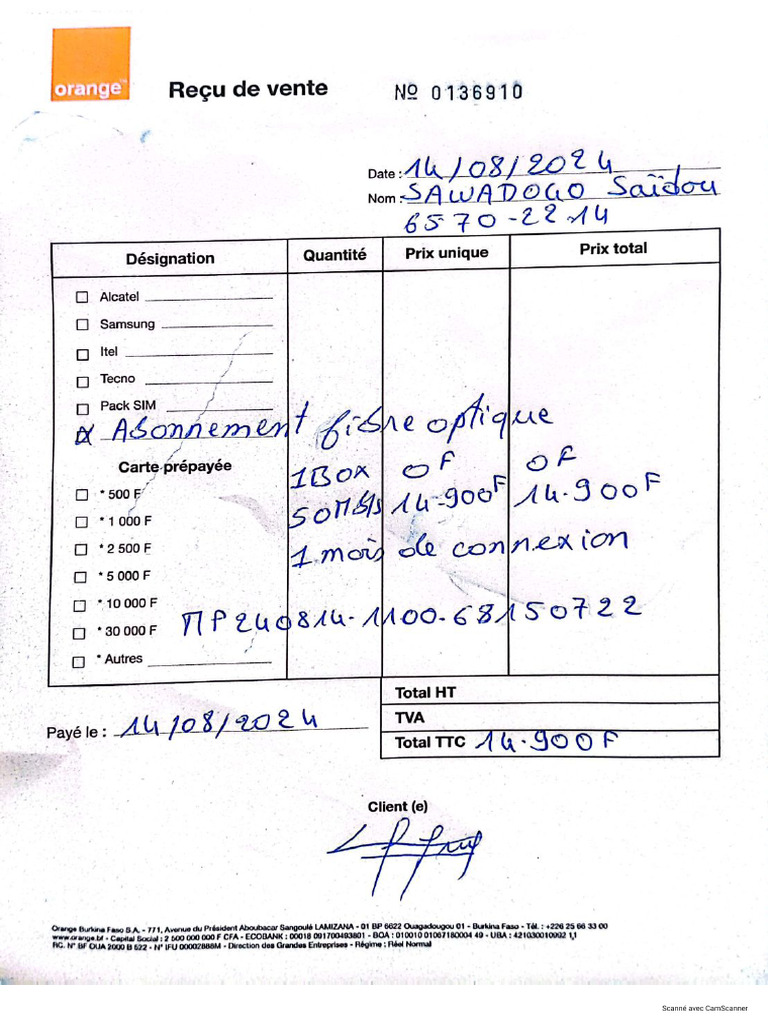 orange™
Reçu de vente Nº 0136910
Date : 14/08/2024
Nom : SAWADOGO Saïdou
6570-22 14
Désignation Quantité Prix unique Prix total
Alcatel
Samsung
Itel
Tecno
Pack SIM
Abonnement fibre optique
Carte prépayée
1BOX 0F 0F
* 500 F
50Mb/s 14-900F 14.900F
* 1 000 F
* 2 500 F 1 mois de connexion
* 5 000 F
* 10 000 F
* 30 000 F MP240814-1100-68150722
* Autres
Total HT
Payé le : 14/08/2024 TVA
Total TTC 14.900F
Client (e)
Orange Burkina Faso S.A. - 771, Avenue du Président Aboubacar Sangoulé LAMIZANA - 01 BP 6622 Ouagadougou 01 - Burkina Faso - Tél. : +226 25 66 33 00
www.orange.bf - Capital Social : 2 500 000 000 F CFA - ECOBANK : 00018 091700493801 - BOA : 010010 01067180004 49 - UBA : 421030010992 11
RC. N° BF OUA 2000 B 522 - N° IFU 00002888M - Direction des Grandes Entreprises - Régime : Réel Normal
Scanné avec CamScanner